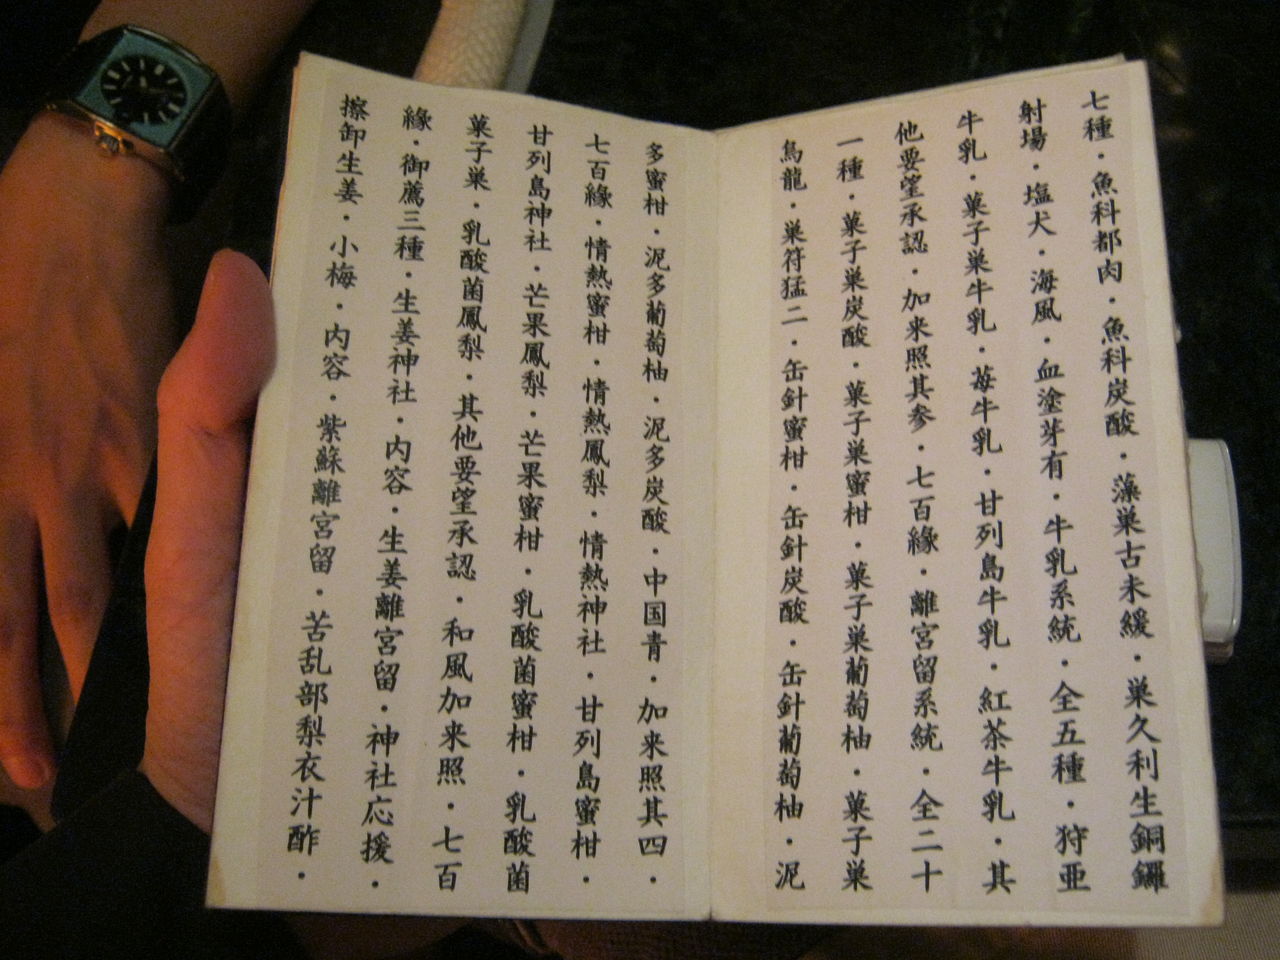 七種・魚科都肉・魚科炭酸・藻巣古未緩・巣久利生銅鑼
射場・塩犬・海風・血塗芽有・牛乳系統・全五種・狩亜
牛乳・菓子巣牛乳・苺牛乳・甘列島牛乳・紅茶牛乳・其
他要望承認・加来照其参・七百縁・離宮留系統・全二十
一種・菓子巣炭酸・菓子巣蜜柑・菓子巣葡萄柚・菓子巣
烏龍・巣符猛二・缶針蜜柑・缶針炭酸・缶針葡萄柚・泥
多蜜柑・泥多葡萄柚・泥多炭酸・中国青・加来照其四・
七百縁・情熱蜜柑・情熱鳳梨・情熱神社・甘列島蜜柑・
甘列島神社・芒果鳳梨・芒果蜜柑・乳酸菌蜜柑・乳酸菌
菓子巣・乳酸菌鳳梨・其他要望承認・和風加来照・七百
縁・御薦三種・生姜神社・内容・生姜離宮留・神社応援・
擦卸生姜・小梅・内容・紫蘇離宮留・苦乱部梨衣汁酢・